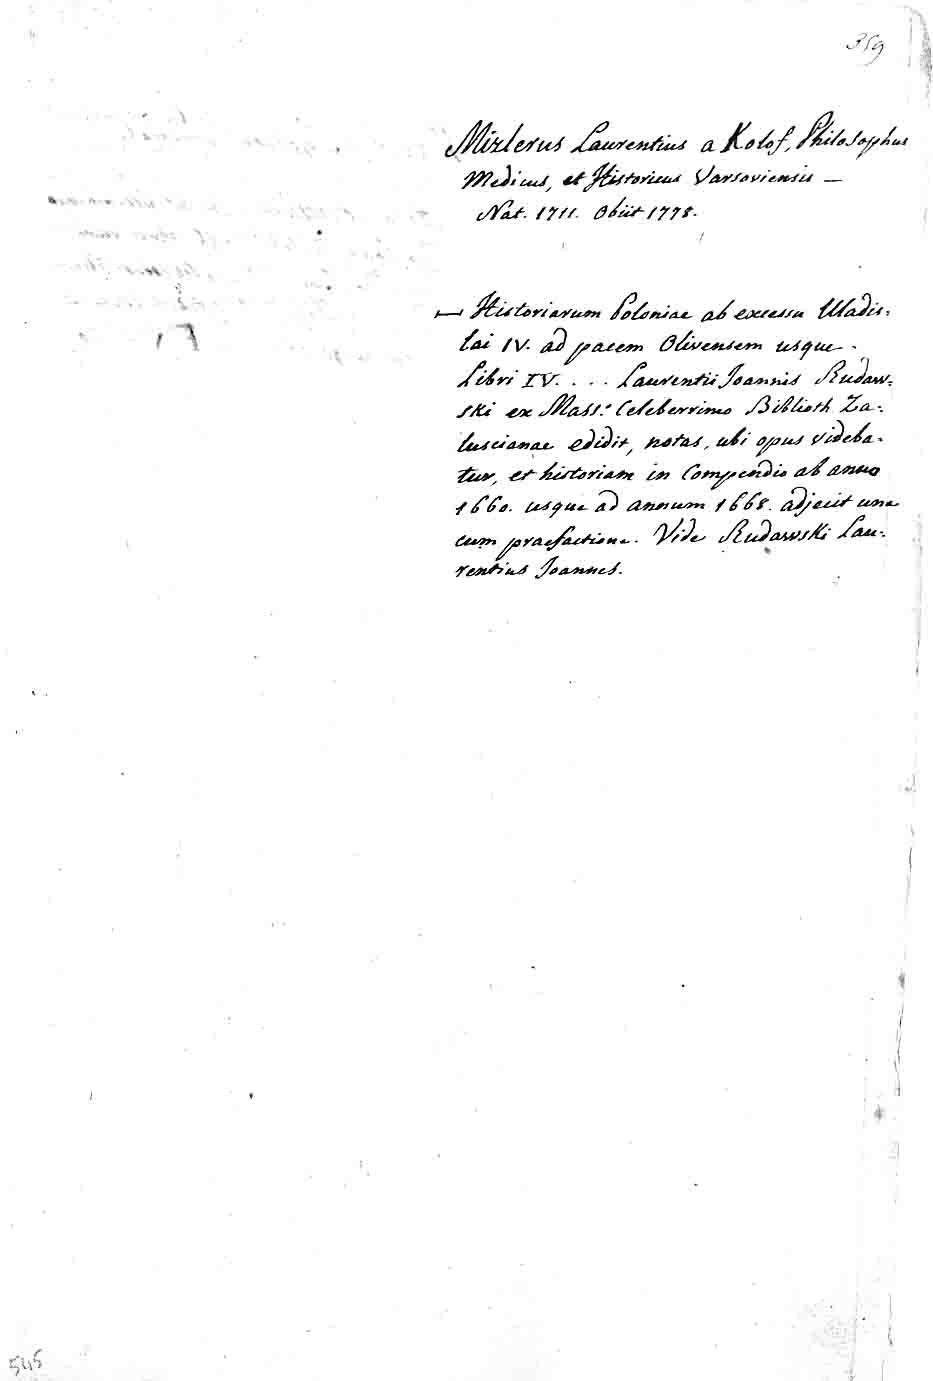 359
Mizlerus Laurentius a Kolof, Philosophus
Medicus, et Historicus Varsoviensis —
Nat. 1711. Obiit 1778.
— Historiarum Poloniae ab excessu Uladis-
lai IV. ad pacem Olivensem usque.
Libri IV. . . . Laurentii Joannis Rudaw-
ski ex Mass: Celeberrimo Biblioth Za-
luscianae edidit, notas, ubi opus videba-
tur, et historiam in Compendio ab anno
1660. usque ad annum 1668. adjecit una
cum praefactione. Vide Rudawski Lau-
rentius Joannes.
545